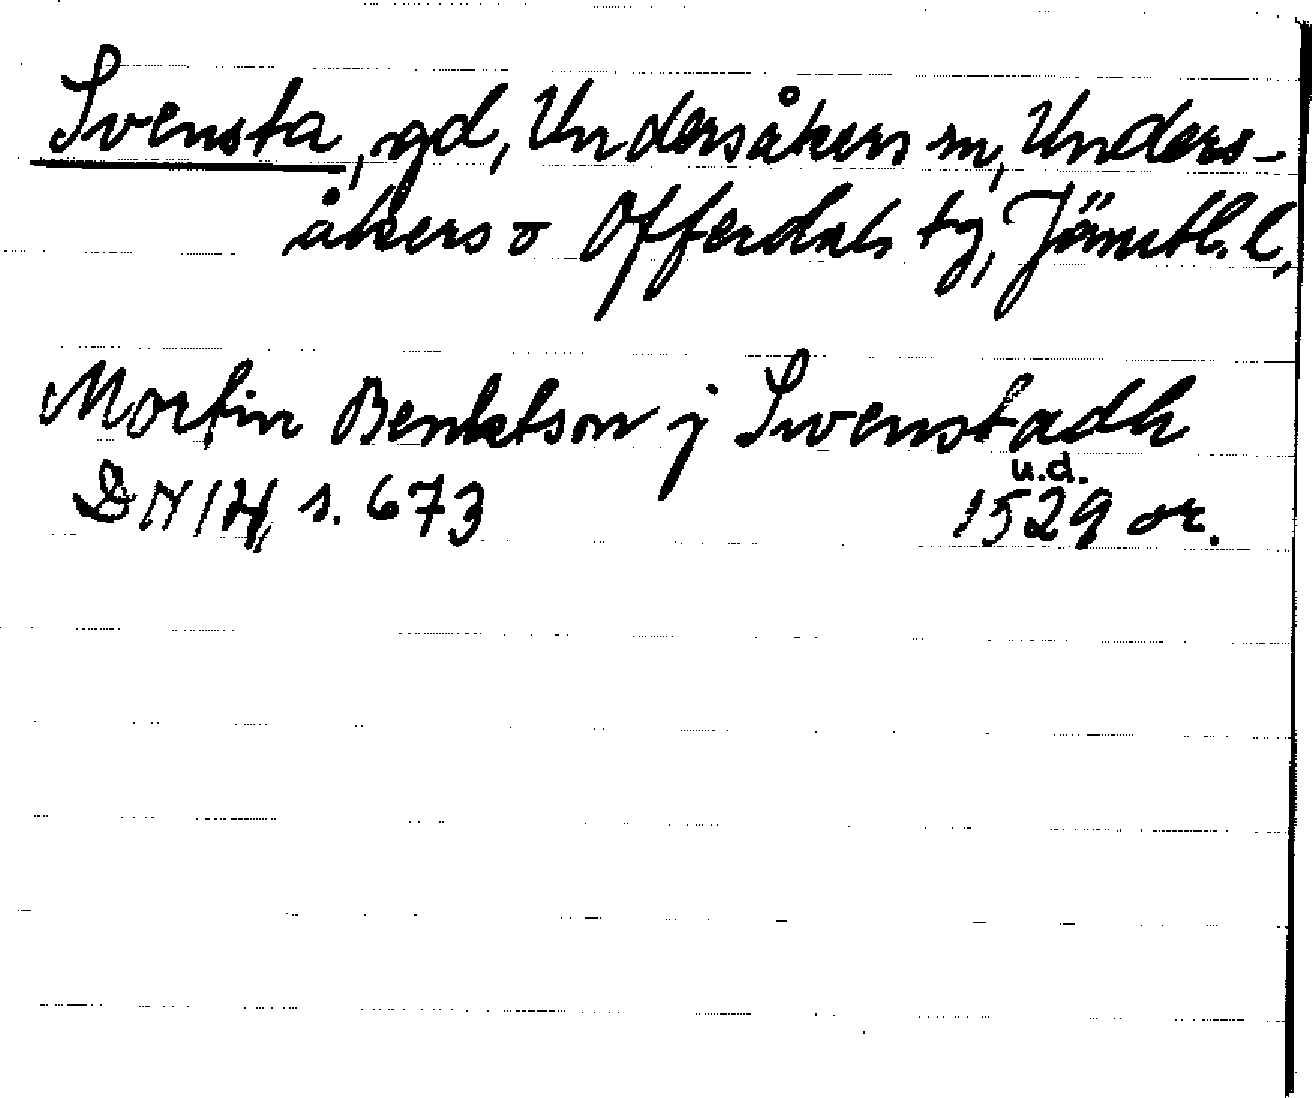 Svensta, gd, Undersåkers sn, Unders-
åkers o Offerdals tg, Jämtl. l.
Mortin Benktson j Swenstadh
DN 14, s. 673 u.d. 1529 or.